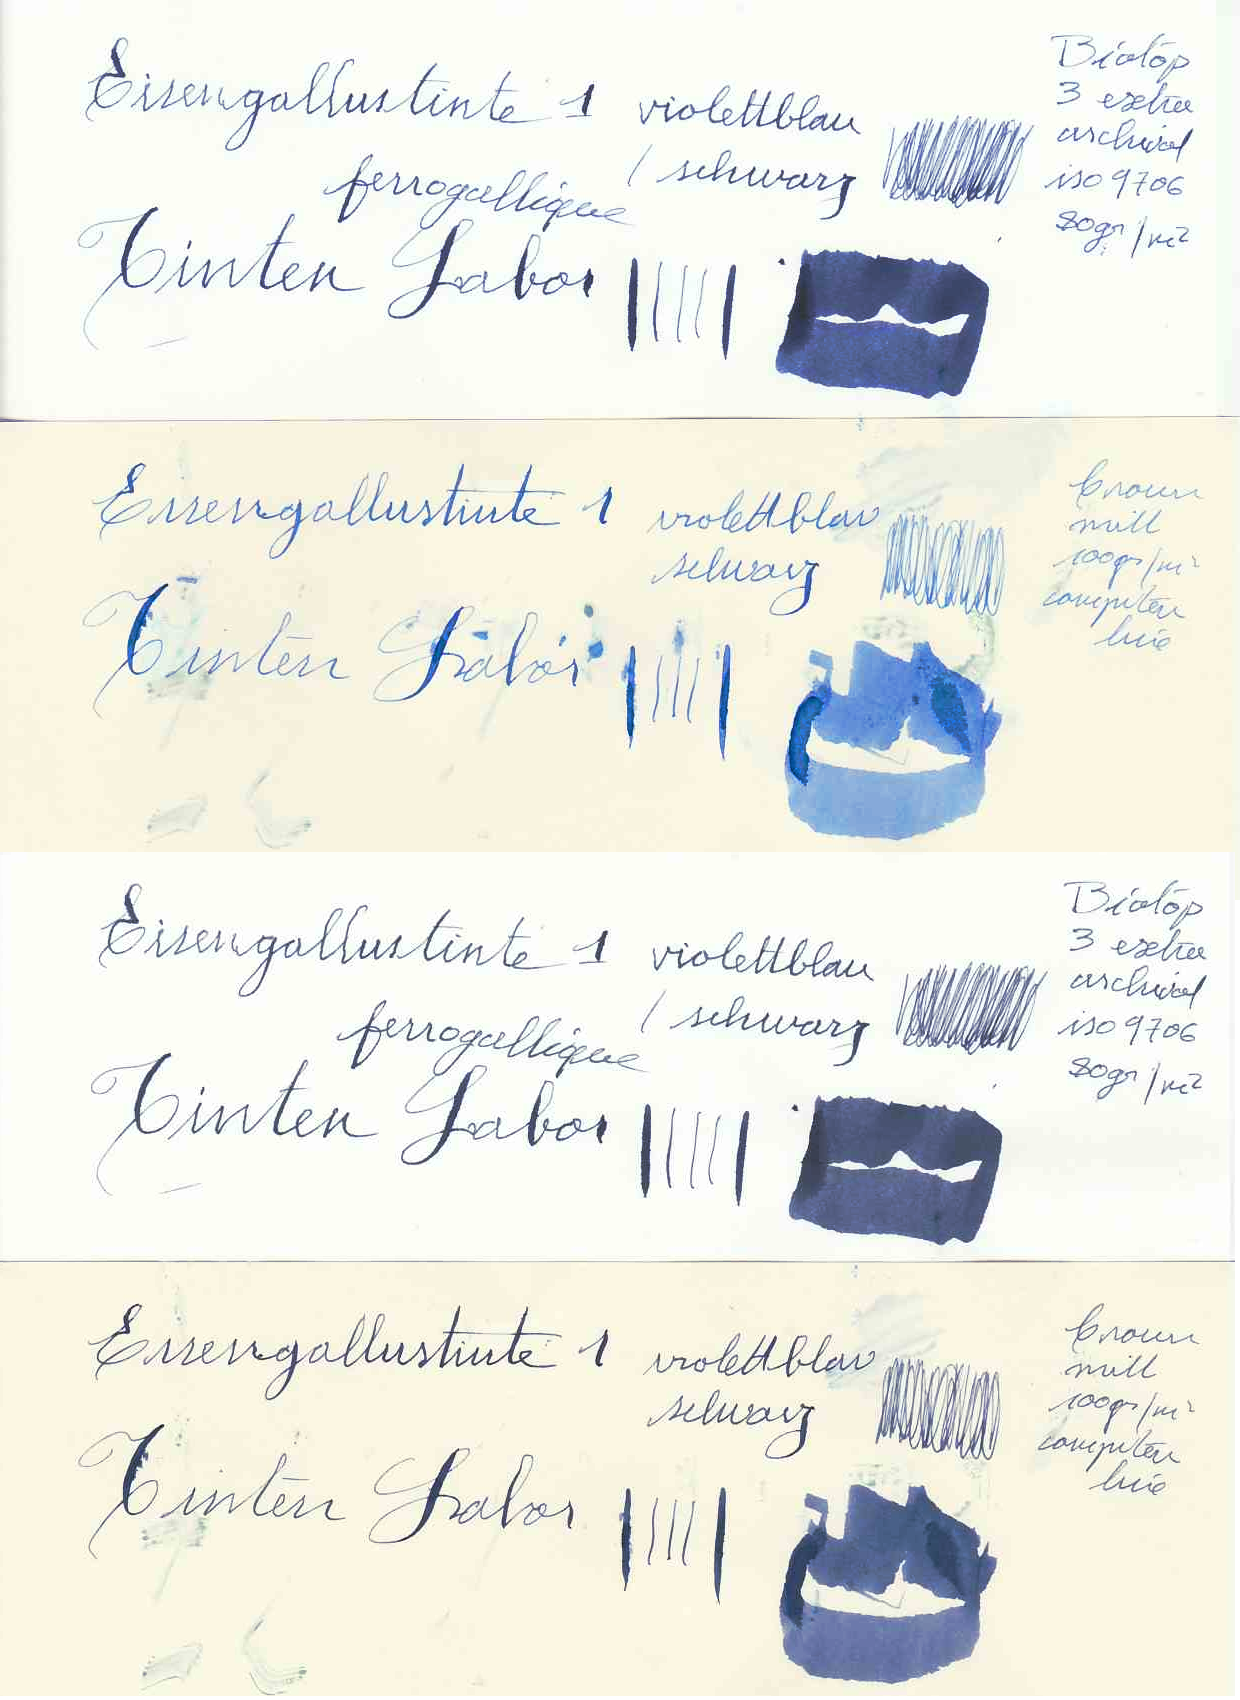 Eisengallustinte 1 violettblau
/ schwarz
ferrogallique
Tinten Labor
Biotop
3 extra
archival
iso 9706
80gr/m²
Eisengallustinte 1 violettblau
schwarz
Tinten Labor
Crown
mill
100gr/m²
computer
line
Eisengallustinte 1 violettblau
/ schwarz
ferrogallique
Tinten Labor
Biotop
3 extra
archival
iso 9706
80gr/m²
Eisengallustinte 1 violettblau
schwarz
Tinten Labor
Crown
mill
100gr/m²
computer
line